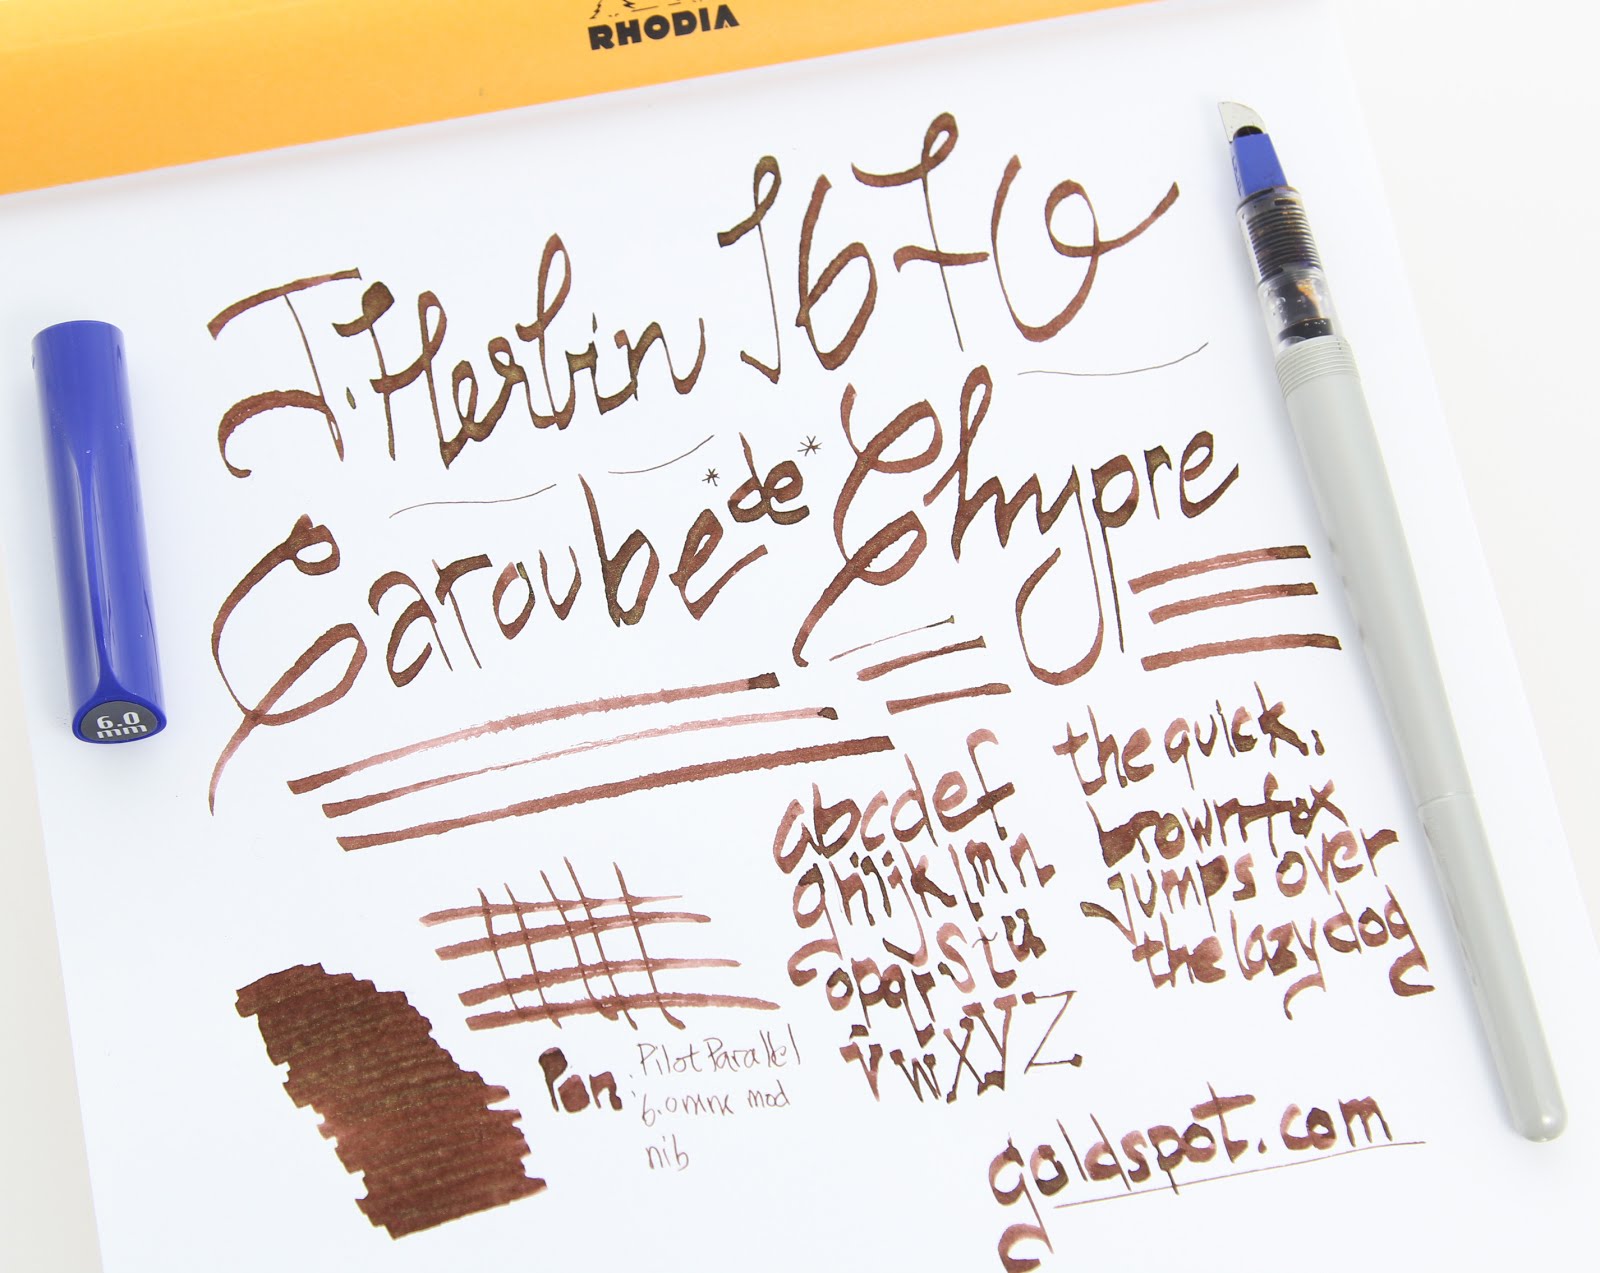 RHODIA
J. Herbin 1670
Caroube *de* Chypre
6.0
mm
abcdef
ghijklmn
opqrstu
vwxyz
the quick
brown fox
jumps over
the lazy dog
Pen: Pilot Parallel
6.0mm mod
nib
goldspot.com